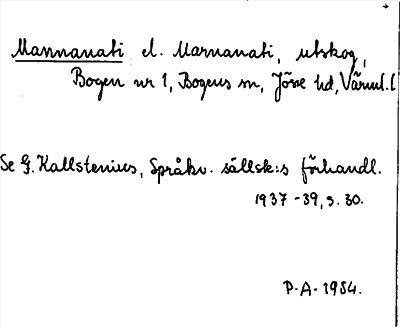 Mannanati el. Marnanati, utskog,
Bogen nr 1, Bogens sn, Jösse hd, Värml. l
Se G. Kallstenius, Språkv. sällsk:s förhandl.
1937-39, s. 30.
P.A. 1954.